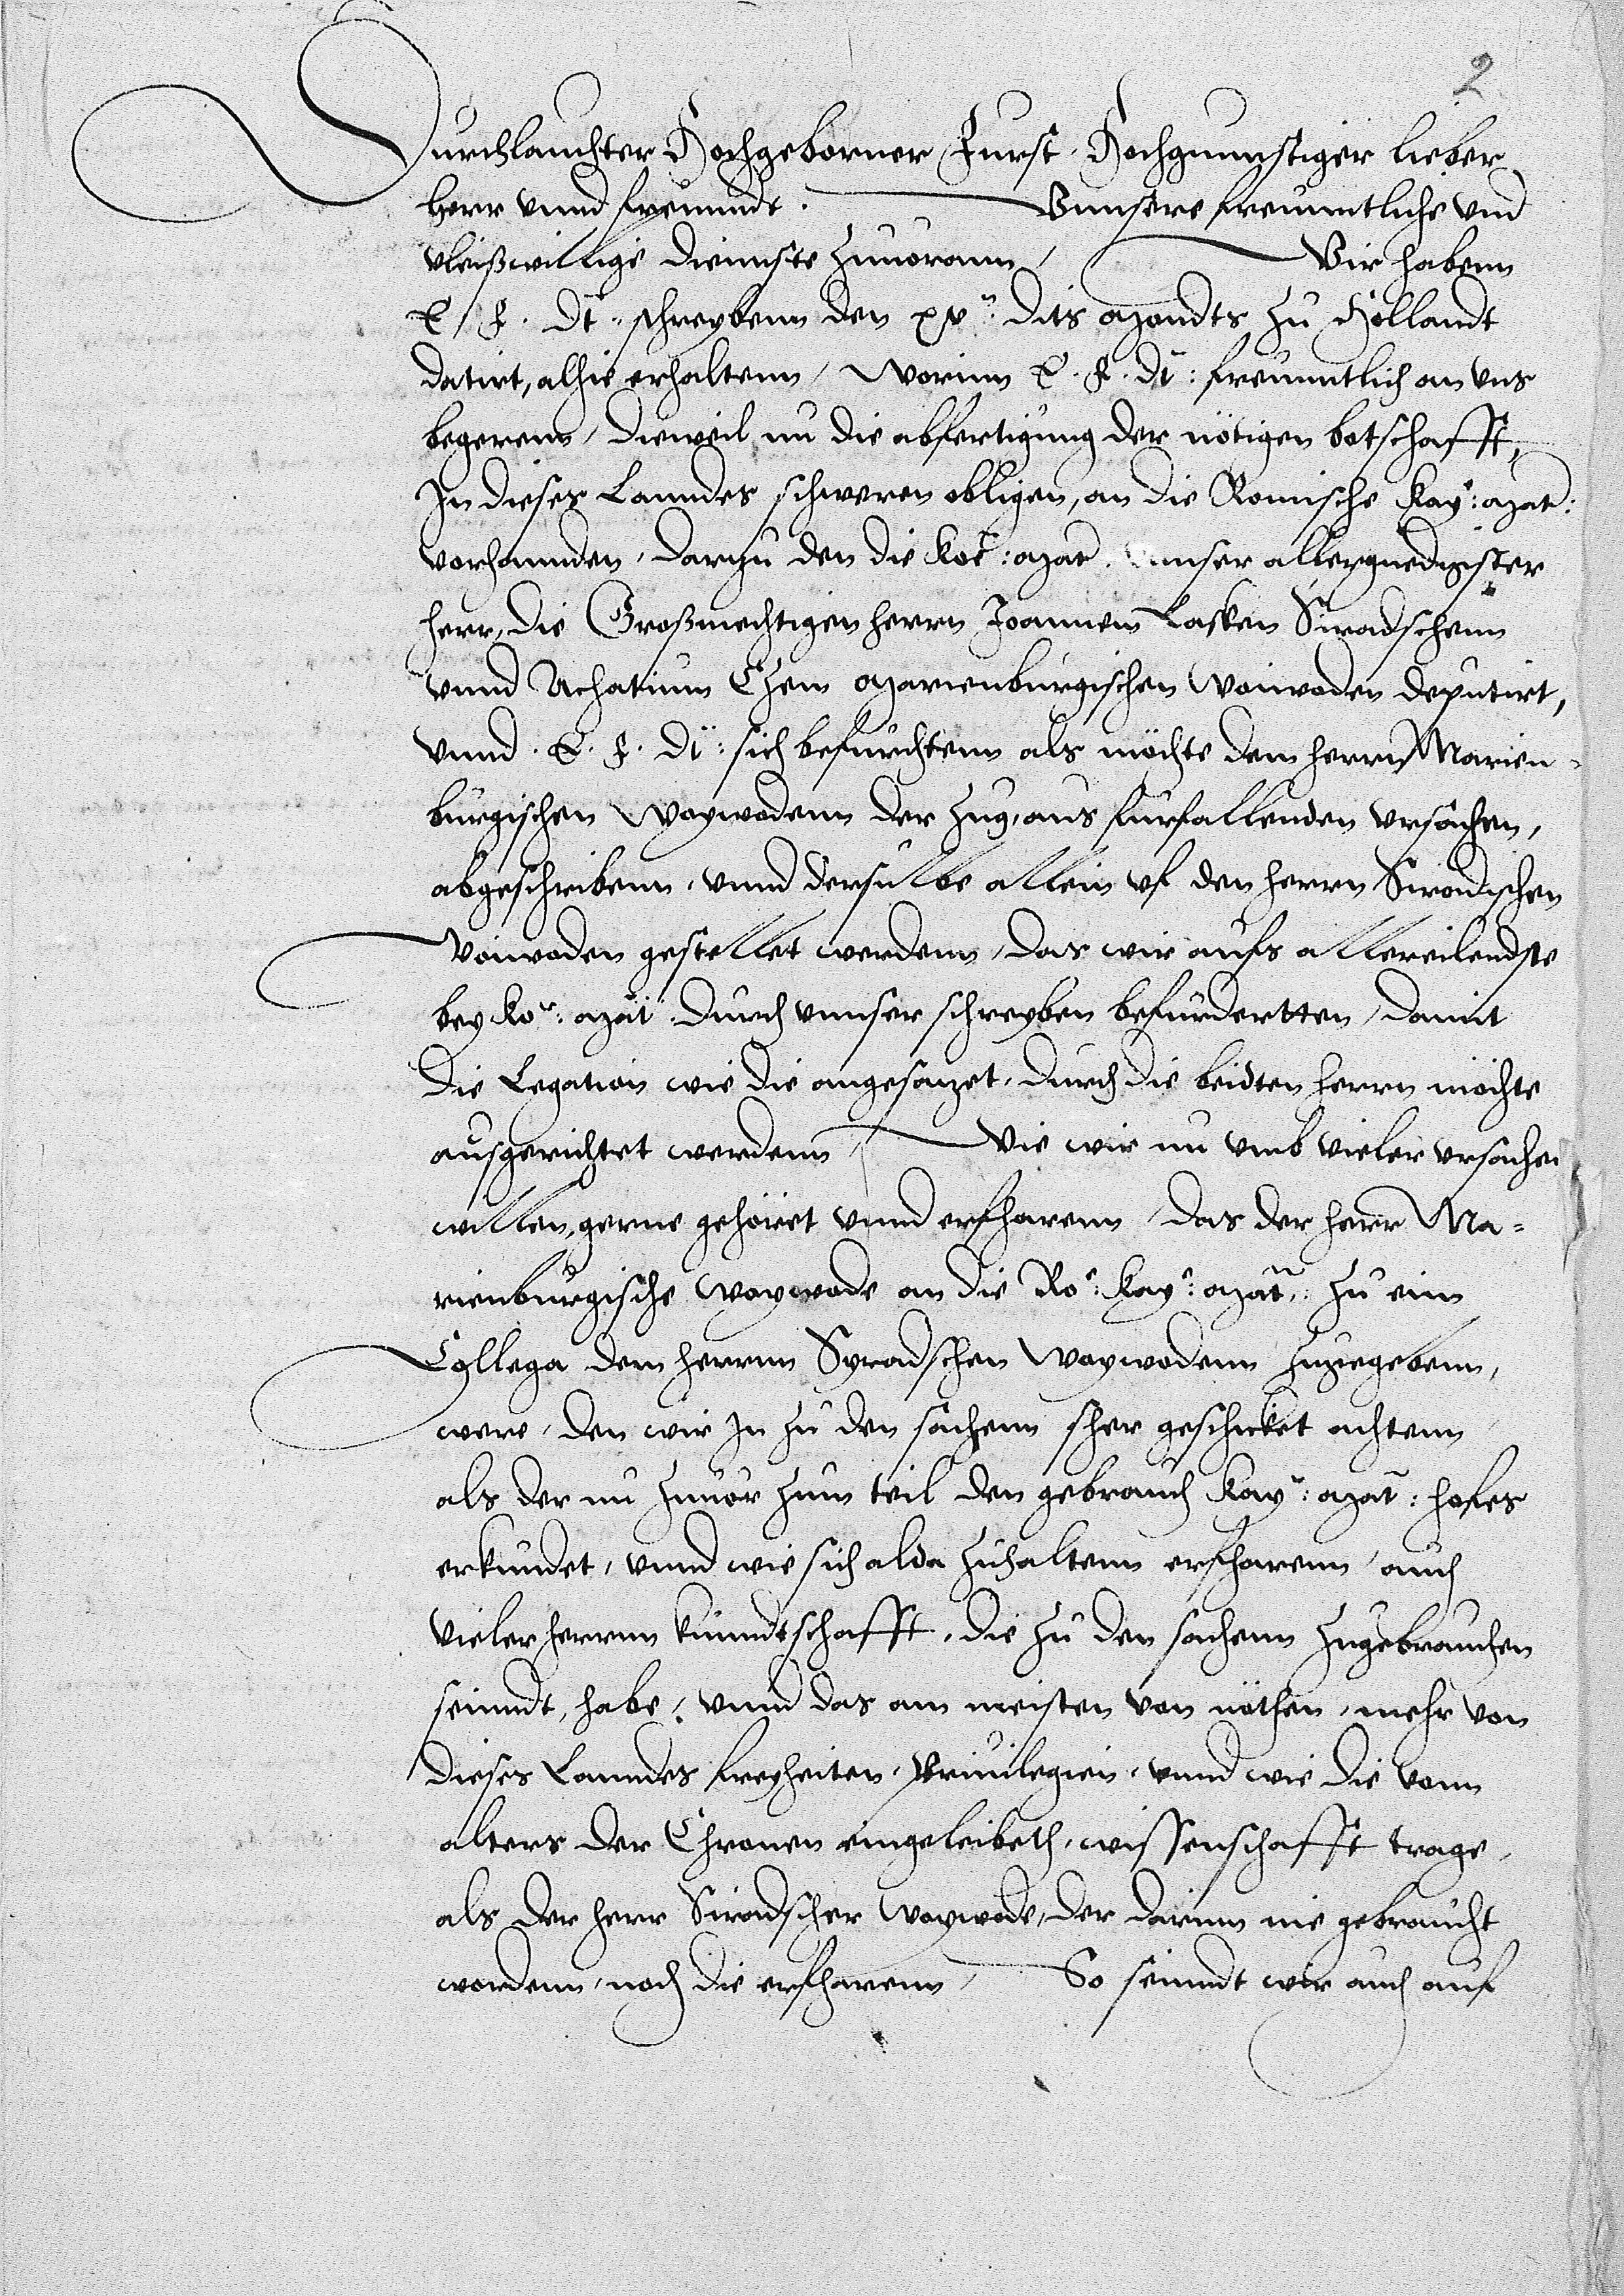 2
Durchlauchter Hochgeborner Furst, Hochgunnstiger lieber
herr vnnd freunndt. Vnnsere freunntliche vnd
vleißwillige diennste zuuorann, Wir habenn
E. F. Dt: schreybenn den xv. dits Monts zu Hollandt
datirt, alhie erhaltenn, Worinn E. F. Dt: freuntlich an vns
begerenn, dieweil nu die abfertigung der nötigen botschafft,
In dieses Lanndes schweren obligen, an die Romische Kay: Mat:
vorhannden, darzu den die Ko: Mat. vnnser allergnedigister
herr, die Großmechtigen herrn Joannem Lasken Siradschenn
vnnd Achatium Czem Marienburgischen Woiwoden deputirt,
vnnd E. F. Dt: sich befurchtenn als möchte dem herrn Marien-
burgischen Woywodenn der zug, aus furfallenden vrsachen,
abgeschribenn, vnnd dersulbe allein vf den herrn Siradischen
Woiwoden gestellet werdenn, das wir aufs allereilendste
bey Ko: Mat durch vnnser schreyben befurdertten, damit
die Legation wie die angesatzet, durch die beidten herrn möchte
ausgerichtet werdenn, Wie wir nu vmb vieler vrsachen
willen, gerne gehöret vnnd erfharenn, das der herr Ma=
rienburgische Woywode an die Ro: Kay: Mat: zu eim
Collega dem herrnn Syradschen Woywodenn zuzegebenn,
were, den wir In zu den sachenn seher geschicket achtenn
als der nu zuuor zum teil den gebrauch Kay: Mat: hofes
erkundet, vnnd wie sich alda zuhaltenn erfharenn, auch
vieler herrnn kunndtschafft, die zu den sachenn zugebrauchen
seinndt, habe, vnnd das am meisten von nöthen, mehr von
dieses Lanndes freyheiten, Priuilegien, vnnd wie die vonn
alters der Chronen eingeleibeth, wissenschafft trage,
als der herr Siradscher Woywode, der darinn nie gebraucht
wordenn, noch die erfharenn, So seinndt wir auch auf